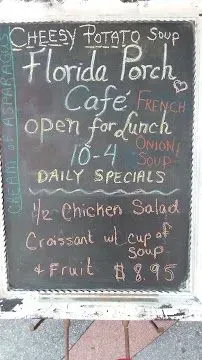 CHEESY POTATO SOUP
Florida Porch
Café
open for Lunch
10-4
DAILY SPECIALS
1/2 Chicken Salad
Croissant w/ cup of
soup
& Fruit $8.95
CREAM of ASPARAGUS
FRENCH
ONION
SOUP